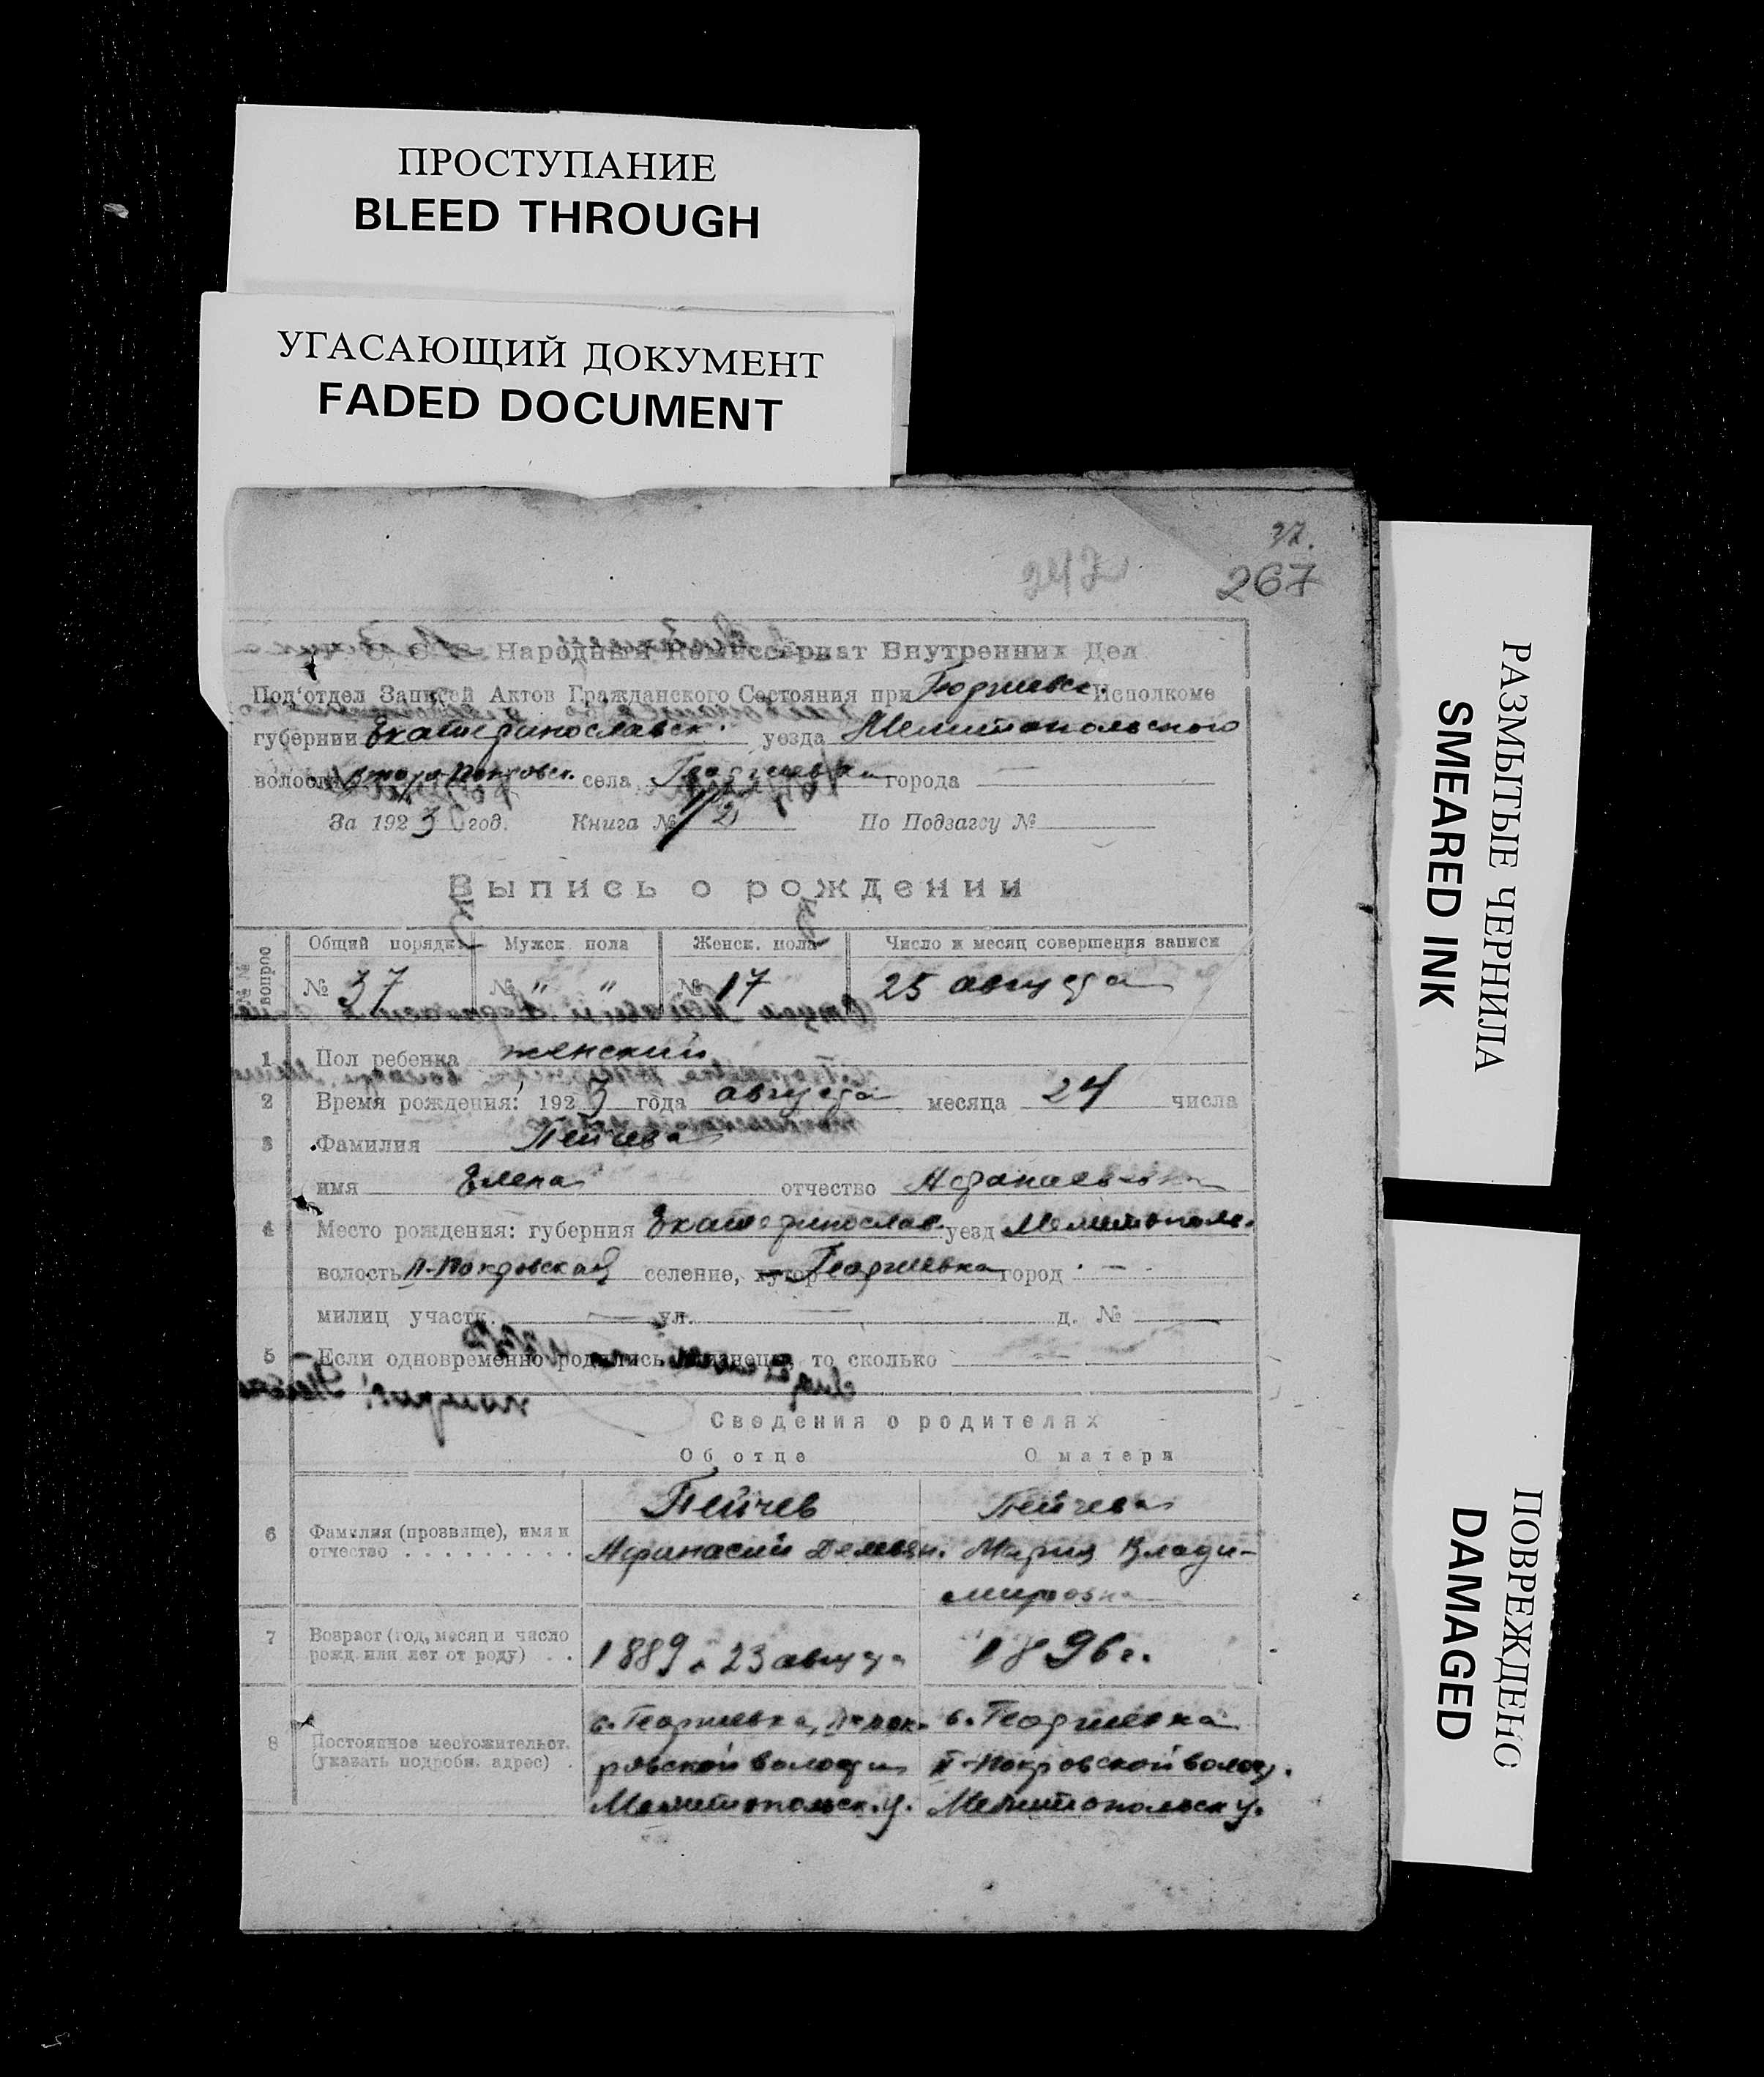 ПРОСТУПАНИЕ
BLEED THROUGH
УГАСАЮЩИЙ ДОКУМЕНТ
FADED DOCUMENT
РАЗМЫТЫЕ ЧЕРНИЛА
SMEARED INK
ПОВРЕЖДЕНО
DAMAGED
37.
267
Народный Комиссариат Внутренних Дел
Под'отдел Записей Актов Гражданского Состояния при Георгиевск. Исполкоме
губернии Екатеринославск. уезда Мелитопольского
волости Второ-Покровск. села Георгиевка города —
За 1923 год. Книга № 1/2 По Подзагсу №
Выпись о рождении
№№ вопрос
Общий порядк. Мужск. пола Женск. пола Число и месяц совершения записи
№ 37 № " " № 17 25 августа
1 Пол ребенка женский
2 Время рождения: 1923 года августа месяца 24 числа
3 Фамилия Пейчева
имя Елена отчество Афанасьевна
4 Место рождения: губерния Екатеринослав. уезд Мелитополь.
волость II-Покровская селение, хутор Георгиевка город —
милиц участк. — ул. — д. № —
5 Если одновременно родились близнецы, то сколько —
Сведения о родителях
Об отце О матери
6 Фамилия (прозвище), имя и отчество . . . . . . . . .
Пейчев Пейчева
Афанасий Демьян. Мария Влади-
мировна
7 Возраст (год, месяц и число рожд. или лет от роду) . .
1889 г. 23 августа 1896 г.
8 Постоянное местожительст. (указать подробн. адрес) .
с. Георгиевка, II-пок- с. Георгиевка
ровской волости II-Покровской волос.
Мелитопольск. у. Мелитопольск у.